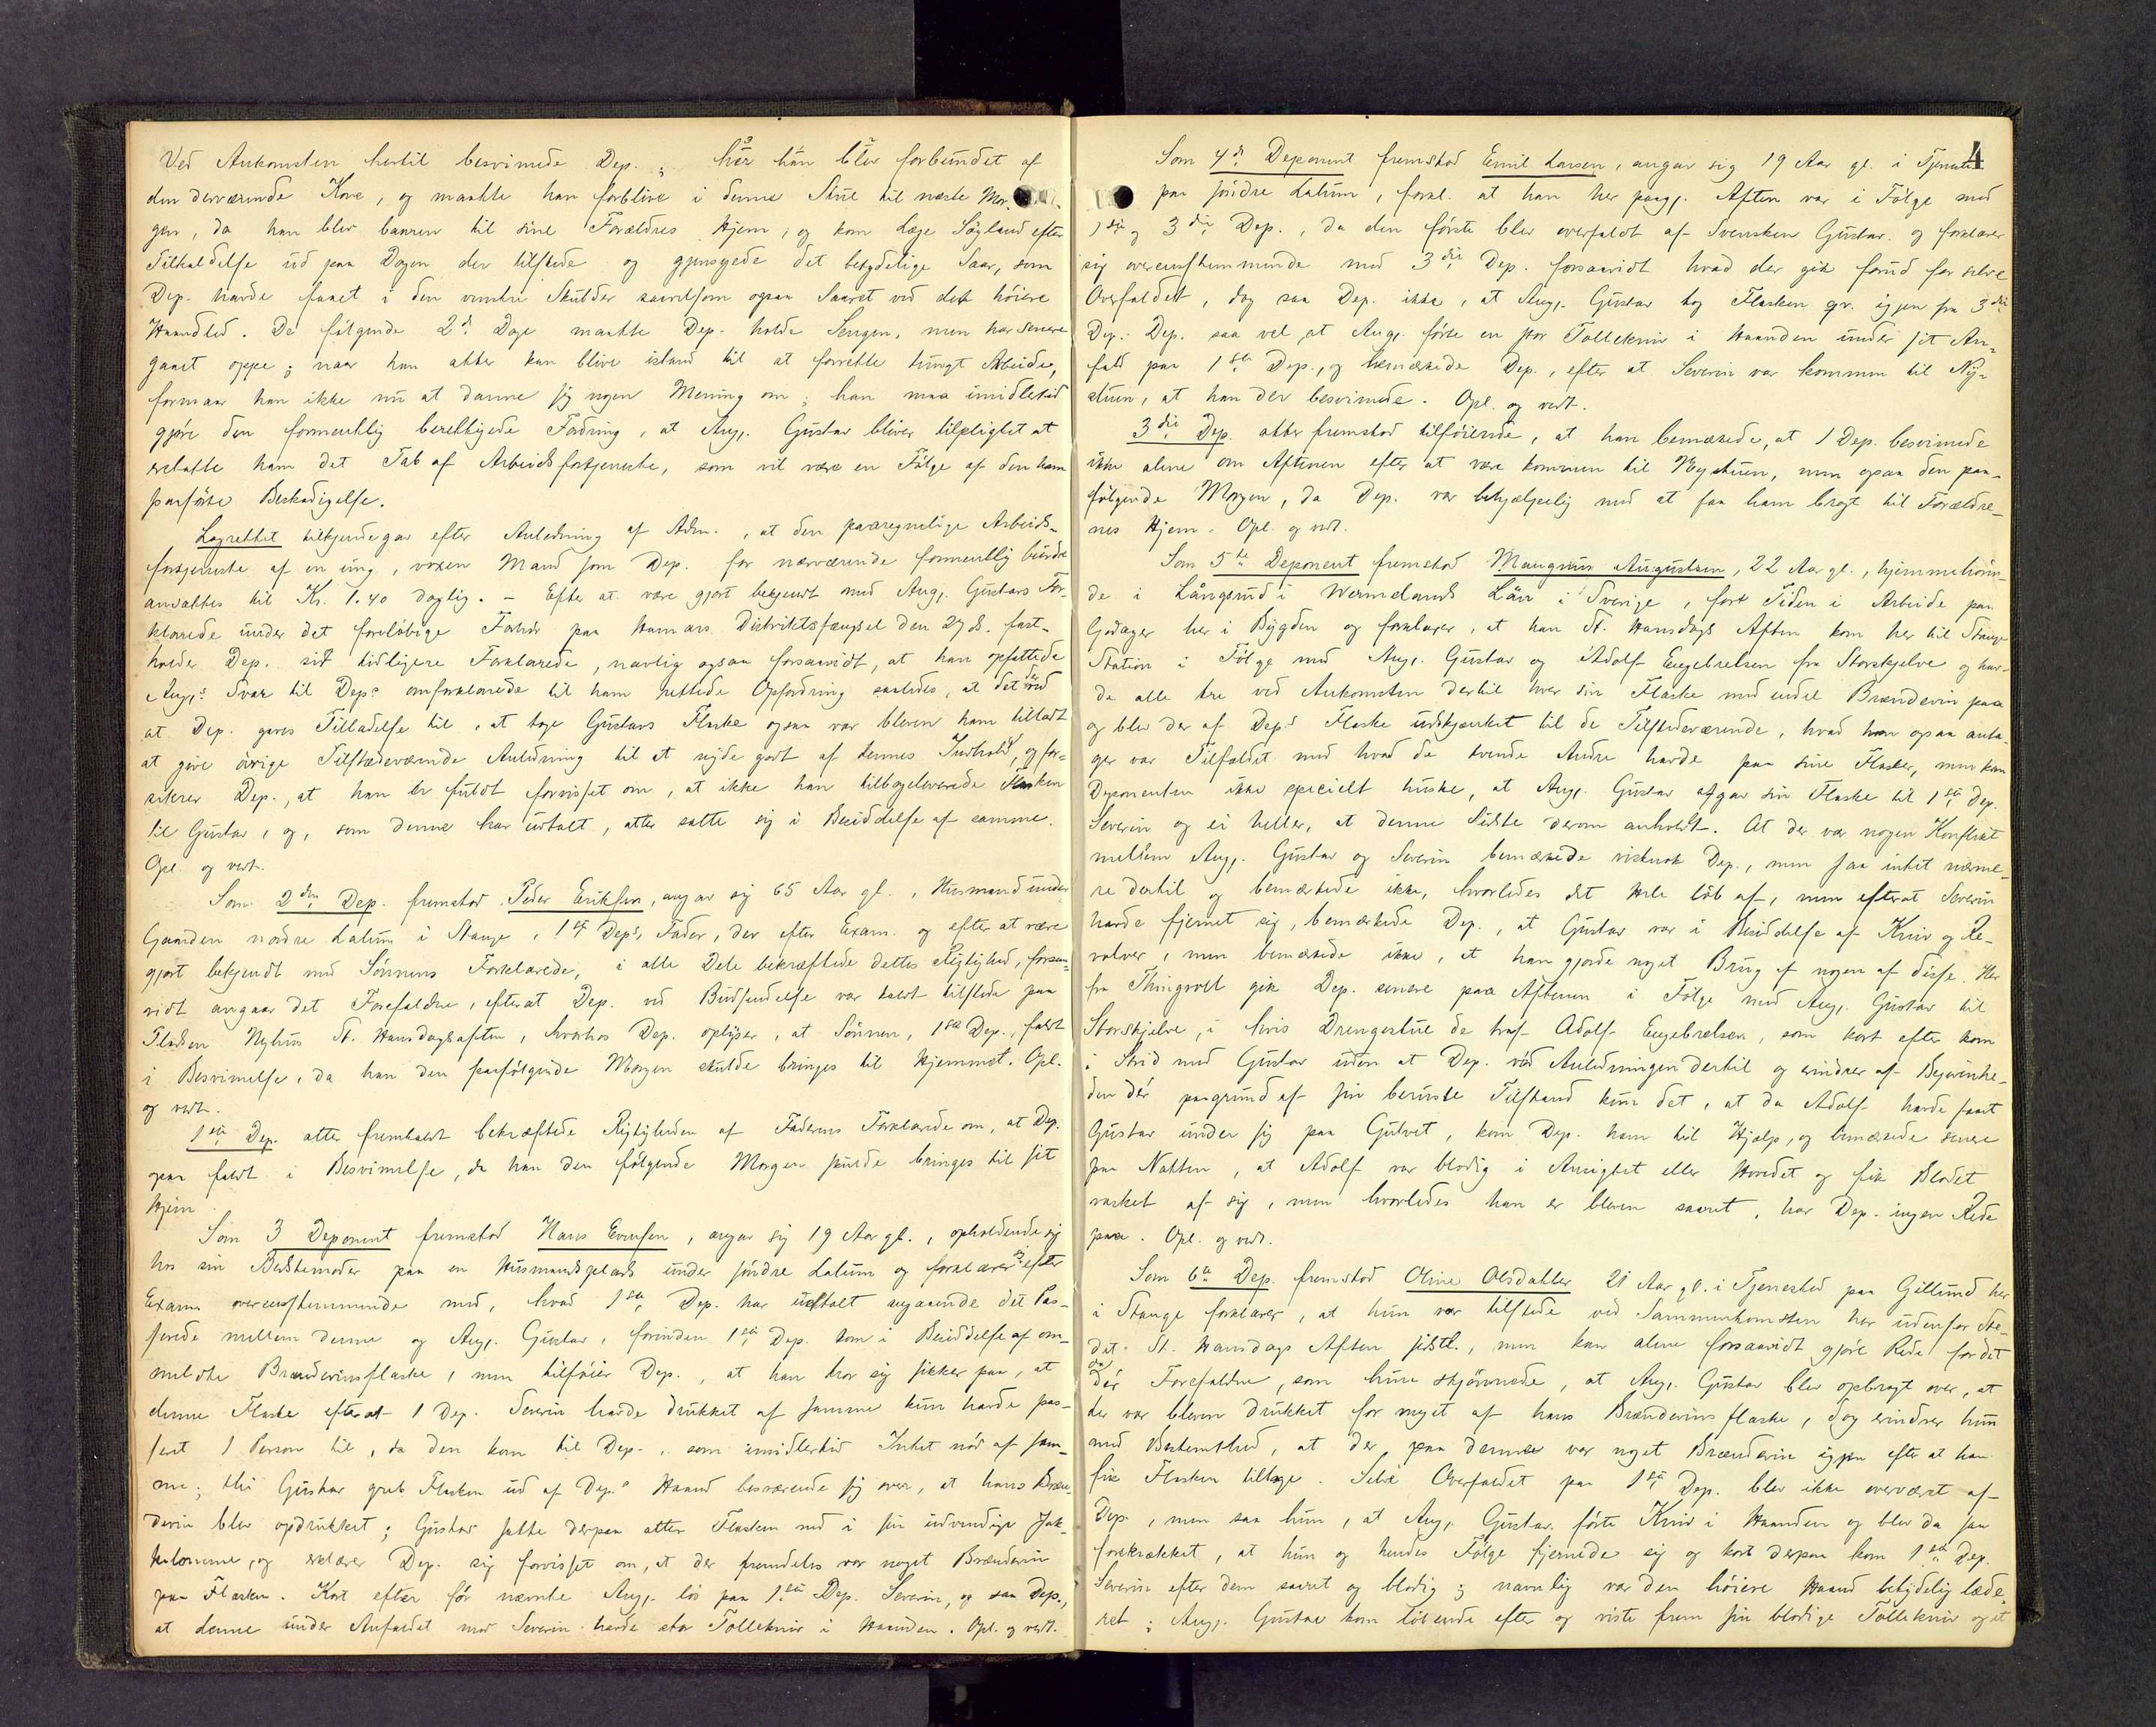 Ved Ankomsten hertil besvimede Dep., hvor han blev forbundet af
den derværende Kone, og maatte han forblive i denne Stue til næste Mor-
gen, da han blev baaren til sine Forældres Hjem, og kom Læge Søgland efter
Tilkaldelse ud paa Dagen der tilstede og gjensyede det betydelige Saar, som
Dep. havde faaet i den venstre Skulder saavelsom ogsaa Saaret ved det høiere
Haandled. De følgende 2de Dage maatte Dep. holde Sengen, men har senere
gaaet oppe; naar han atter kan blive istand til at forrette tungt Arbeide,
formaar han ikke nu at danne sig nogen Mening om; han maa imidlertid
gjøre den formentlig berettigede Fordring, at Ang. Gustav bliver tilpligtet at
erstatte ham det Tab af Arbeidsfortjeneste, som vil være en Følge af den ham
paaførte Beskadigelse.
Lagrettet tilkjendegav efter Anledning af Adm., at den paaregnelige Arbeids-
fortjeneste af en ung, voxen Mand som Dep. for nærværende formentlig burde
ansættes til Kr. 1.40 daglig. - Efter at være gjort bekjendt med Ang. Gustavs For-
klarede under det foreløbige Forhør paa Hamars Distriktsfængsel den 27 ds. fast-
holder Dep. sit tidligere Forklarede, navnlig ogsaa forsaavidt, at han opfattede
Ang.s Svar til Dep.s omforklarede til ham rettede Opfordring saaledes, at det ved
at Dep. gaves Tilladelse til, at tage Gustavs Flaske ogsaa var bleven ham tilladt
at give øvrige Tilstedeværende Anledning til at nyde godt af dennes Indhold, og for-
sikrer Dep., at han er fuldt forvisset om, at ikke han tilbageleverede Flasken
til Gustav, og, som denne har udtalt, atter satte sig i Besiddelse af samme.
Opl. og vedt.
Som 2den Dep. fremstod Peder Eriksen, angav sig 65 Aar gl., Husmand under
Gaarden nordre Lalum i Stange, 1ste Dep.s Fader, der efter Exam. og efter at være
gjort bekjendt med Sønnens Forklarede, i alle Dele bekræftede dettes Rigtighed, forsaa-
vidt angaar det Forefaldne, efterat Dep. ved Budsendelse var kaldt tilstede paa
Pladsen Nyhus St. Hansdagsaften, hvorhos Dep. oplyser, at Sønnen, 1ste Dep., faldt
i Besvimelse, da han den paafølgende Morgen skulde bringes til Hjemmet. Opl.
og vedt.
1ste Dep. atter fremkaldt bekræftede Rigtigheden af Faderens Forklarede om, at Dep.
ogsaa faldt i Besvimelse, da han den følgende Morgen skulde bringes til sit
Hjem.
Som 3 Deponent fremstod Hans Evensen, angav sig 19 Aar gl., opholdende sig
hos sin Bedstemoder paa en Husmandsplads under søndre Lalum og forklarer sig efter
Exam. overensstemmende med, hvad 1ste Dep. har udtalt angaaende det Pas-
serede mellem denne og Ang. Gustav, forinden 1ste Dep. kom i Besiddelse af om-
meldte Brændevinsflaske, men tilføier Dep., at han tror sig sikker paa, at
denne Flaske efterat 1 Dep. Severin havde drukket af samme kun havde pas-
seret 1 Person til, da den kom til Dep., som imidlertid Intet nød af sam-
me; thi Gustav greb Flasken ud af Dep.s Haand besværende sig over, at hans Bræn-
devin blev opdrukket; Gustav satte derpaa atter Flasken ned i sin udvendige Jak-
kelomme, og erklærer Dep. sig forvisset om, at der fremdeles var noget Brændevin
paa Flasken. Kort efter før nævnte Ang. løs paa 1ste Dep. Severin, og saa Dep.,
at denne under Anfaldet mod Severin havde stor Tollekniv i Haanden. Opl. og vedt.
4
Som 4de Deponent fremstod Emil Larsen, angav sig 19 Aar gl. i Tjeneste
paa søndre Lalum, forkl. at han her paag. Aften var i Følge med
1ste og 3die Dep., da den første blev overfaldt af Svensken Gustav og forklarer
sig overensstemmende med 3die Dep. forsaavidt hvad der gik forud for selve
Overfaldet, dog saa Dep. ikke, at Ang. Gustav tog Flasken gr. igjen fra 3die
Dep. Dep. saa vel, at Ang. førte en stor Tollekniv i Haanden under sit An-
fald paa 1ste Dep., og bemærkede Dep., efter at Severin var kommen til Ny-
stuen, at han der besvimede. Opl. og vedt.
3die Dep. atter fremstod tilføiende, at han bemærkede, at 1 Dep. besvimede
ikke alene om Aftenen efter at være kommen til Nystuen, men ogsaa den paa-
følgende Morgen, da Dep. var behjælpelig med at faa ham bragt til Forældre-
nes Hjem. Opl. og vedt.
Som 5te Deponent fremstod Mangnus Augustsen, 22 Aar gl., hjemmehøren-
de i Långsrud i Wermelands Län i Sverige, fort Tiden i Arbeide paa
Godager her i Bygden og forklarer, at han St. Hansdags Aften kom her til Stange
Station i Følge med Ang. Gustav og Adolf Engebretsen fra Storskjelve og hav-
de alle tre ved Ankomsten dertil hver sin Flaske med endel Brændevin paa
og blev der af Dep.s Flaske udskjænket til de Tilstedeværende, hvad han ogsaa anta-
ger var Tilfældet med hvad de tvende Andre havde paa sine Flasker, men kan
Deponenten ikke specielt huske, at Ang. Gustav afgav sin Flaske til 1ste Dep.
Severin og ei heller, at denne Sidste derom anholdt. At der var nogen Konflikt
mellem Ang. Gustav og Severin bemærkede vistnok Dep., men saa intet nærme-
re dertil og bemærkede ikke, hvorledes det Hele løb af, men efterat Severin
havde fjernet sig, bemærkede Dep., at Gustav var i Besiddelse af Kniv og Re-
volver, men bemærkede ikke, at han gjorde noget Brug af nogen af disse. Her
fra Thingvold gik Dep. senere paa Aftenen i Følge med Ang. Gustav til
Storskjelve, i hvis Drengestue de traf Adolf Engebretsen, som kort efter kom
i Strid med Gustav uden at Dep. véd Anledningen dertil og erindrer af Begivenhe-
den dér paagrund af sin beruste Tilstand kun det, at da Adolf havde faaet
Gustav under sig paa Gulvet, kom Dep. ham til Hjælp, og bemærkede senere
paa Natten, at Adolf var blodig i Ansigtet eller Hovedet og fik Blodet
vasket af sig, men hvorledes han er bleven saaret, har Dep. ingen Rede
paa. Opl. og vedt.
Som 6te Dep. fremstod Oline Olsdatter 21 Aar gl. i Tjenested paa Gillund her
i Stange forklarer, at hun var tilstede ved Sammenkomsten her udenfor Ste-
det St. Hansdags Aften sidstl., men kan alene forsaavidt gjøre Rede for det
der Forefaldne, som hun skjønnede, at Ang. Gustav blev opbragt over, at
der var bleven drukket for meget af hans Brændevinsflaske, dog erindrer hun
med Bestemthed, at der paa denne var noget Brændevin igjen efter at han
fik Flasken tilbage. Selve Overfaldet paa 1ste Dep. blev ikke overværet af
Dep., men saa hun, at Ang. Gustav førte Kniv i Haanden og blev da saa
forskrækket, at hun og hendes Følge fjernede sig og kort derpaa kom 1ste Dep.
Severin efter dem saaret og blodig; navnlig var den høiere Haand betydelig læde-
ret; Ang. Gustav kom løbende efter og viste frem sin blodige Tollekniv og et